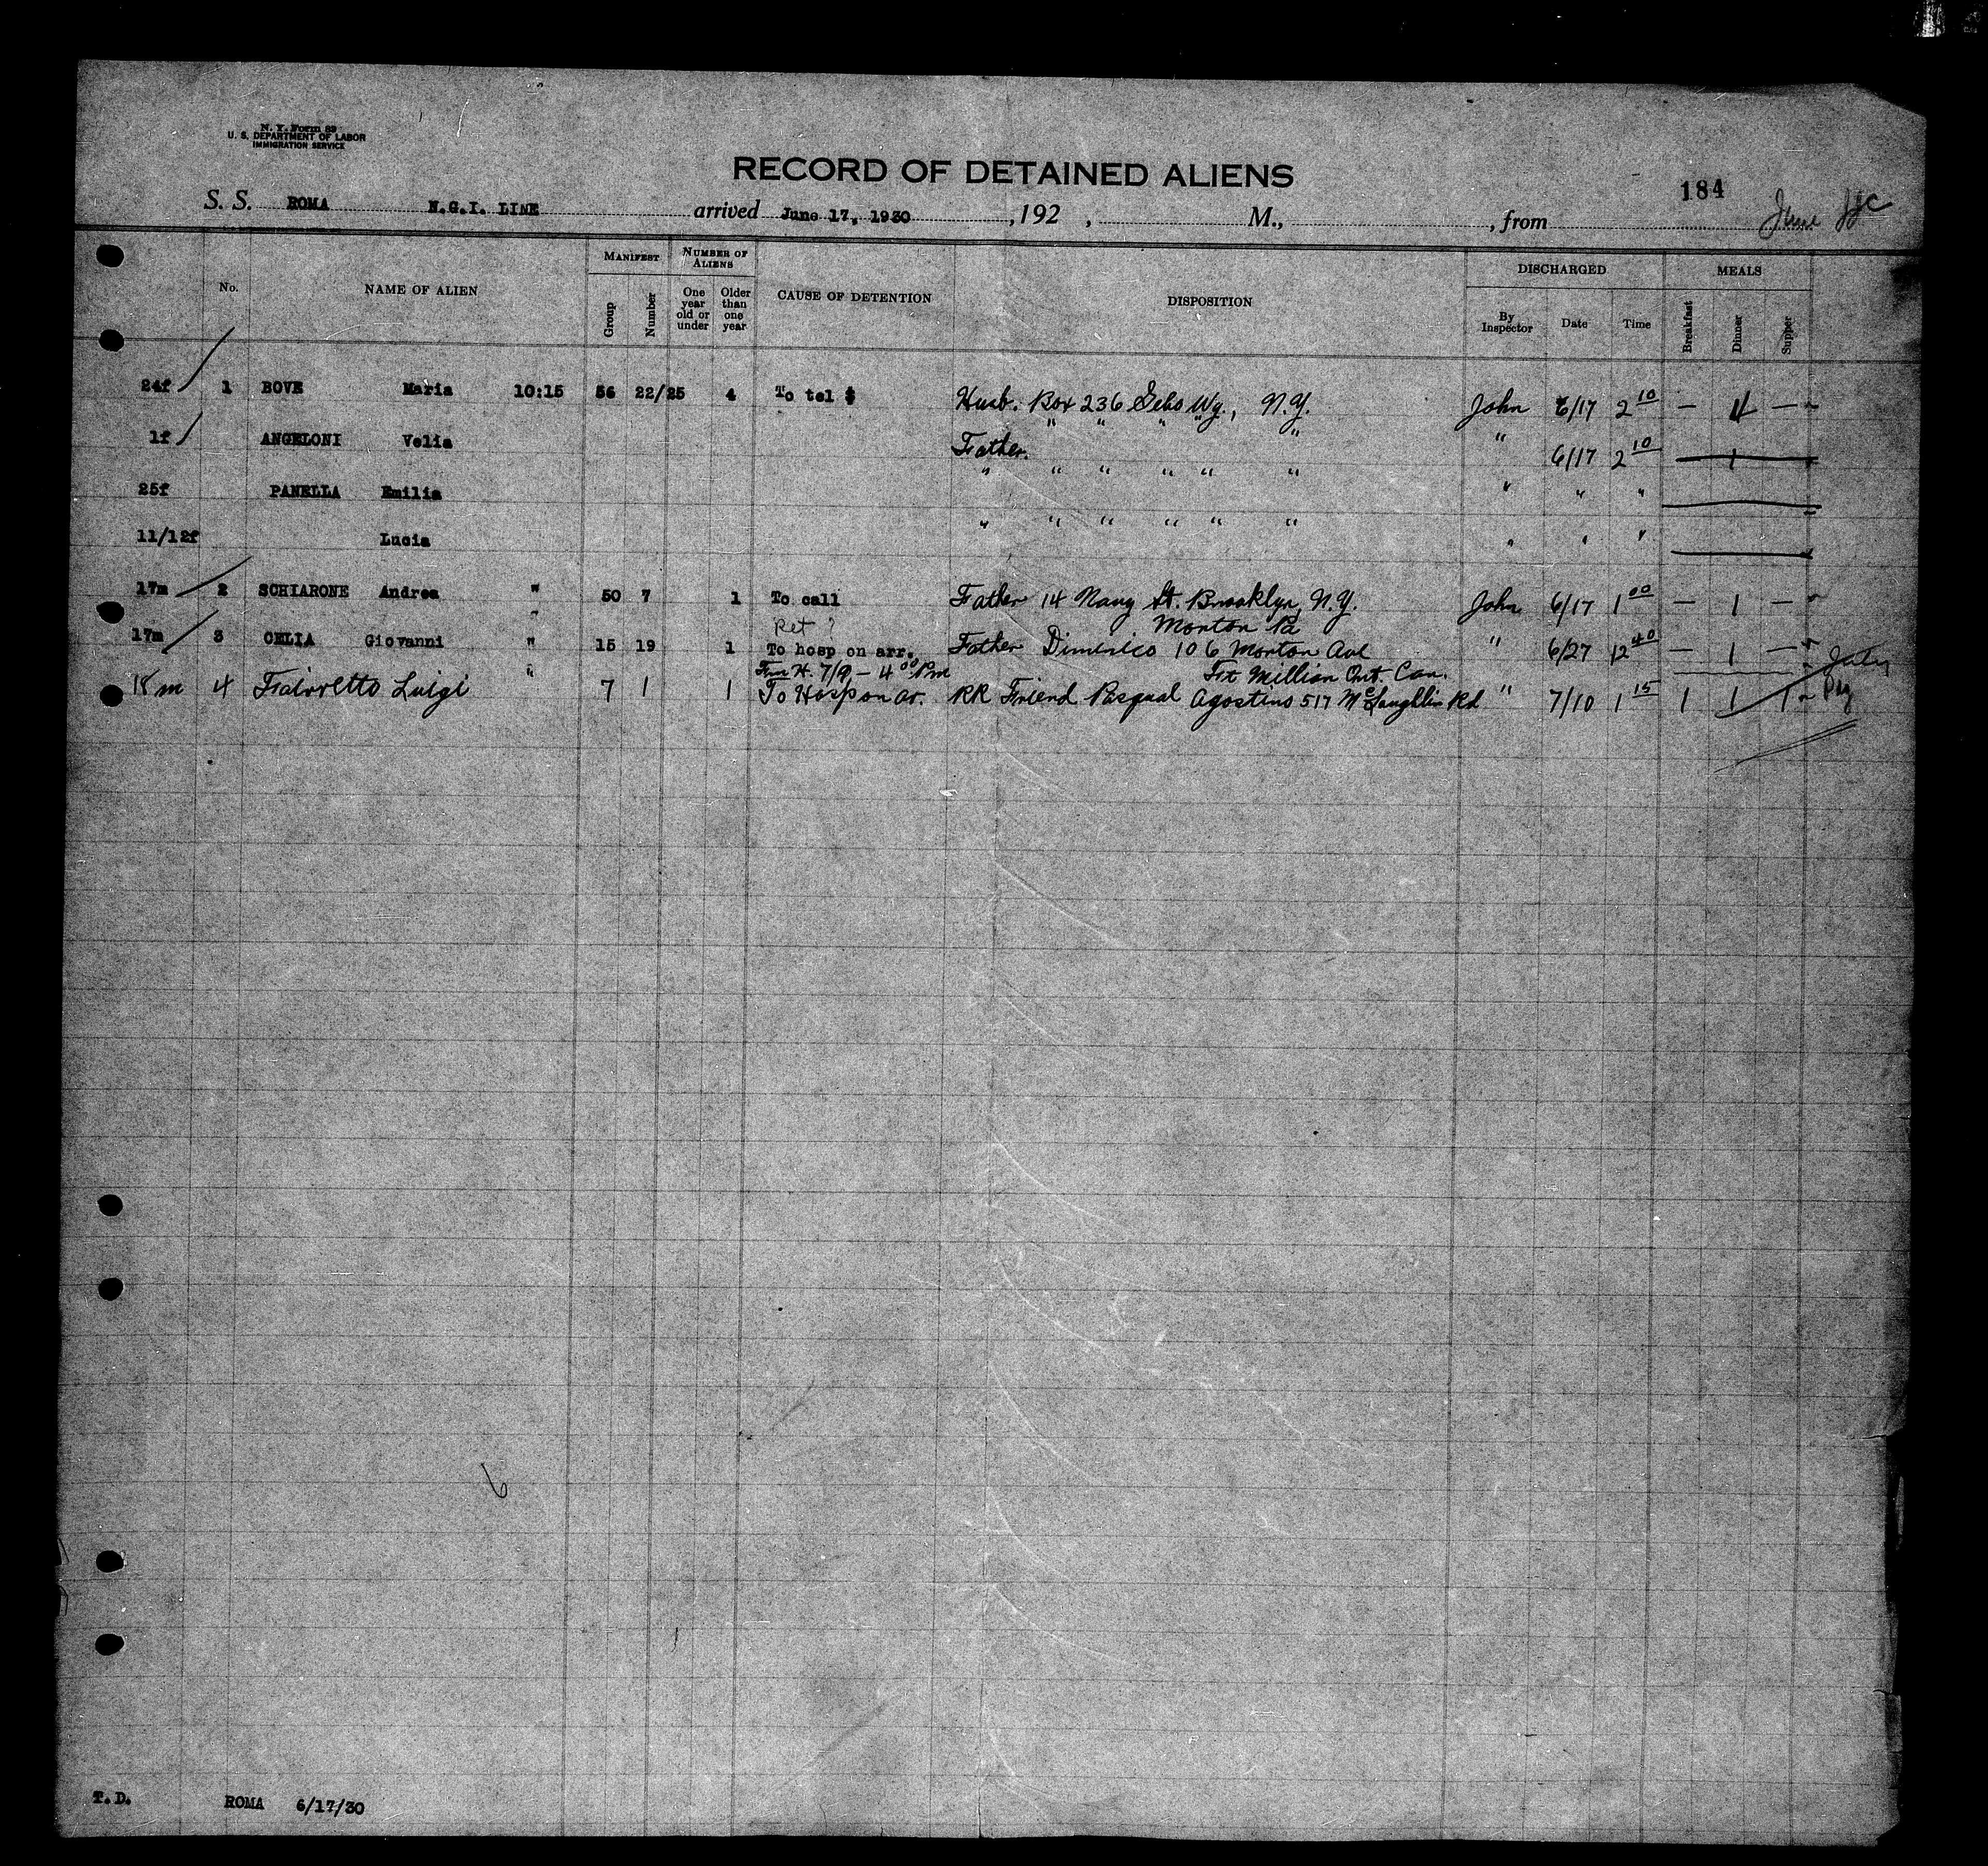 N. Y. Form 89
U. S. DEPARTMENT OF LABOR
IMMIGRATION SERVICE
RECORD OF DETAINED ALIENS
184
S. S. ROMA N.G.I. LINE arrived June 17, 1930, 192 , M., , from June
No. NAME OF ALIEN MANIFEST NUMBER OF ALIENS CAUSE OF DETENTION DISPOSITION DISCHARGED MEALS
Group Number One year old or under Older than one year By Inspector Date Time Breakfast Dinner Supper
24f 1 BOVE Maria 10:15 56 22/25 4 To tel $ Husb. Box 236 N.Y. John 6/17 2 10 — 4 —
1f ANGELONI Velia Father. " " " " " " 6/17 2 10 1
25f PANELLA Emilia " " " " " " " " "
11/12f Lucia " " " " " " " " "
17m 2 SCHIARONE Andrea " 50 7 1 To call Father 14 Navy St. Brooklyn, N.Y. John 6/17 1 00 — 1 —
Ret ? Morton Pa
17m 3 CELIA Giovanni " 15 19 1 To hosp on arr. Father 106 Morton Ave " 6/27 12 40 — 1 —
Fm H. 7/9 — 4 00 Pm Ft William Ont. Can. July
18m 4 Luigi " 7 1 1 To Hosp on ar. RR Friend Pasqual Agostino 517 McLaughlin Rd " 7/10 1 15 1 1 1
6
T.D. ROMA 6/17/30